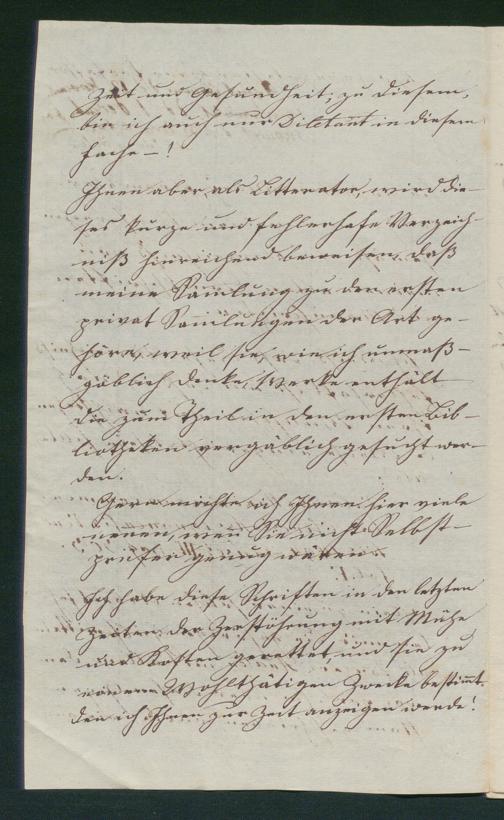 Zeit und Gesundheit; zu diesem,
bin ich auch nur Diletant in diesem
Fache – !
Ihnen aber, als Litterator, wird die-
ses kurze und fehlerhafe Verzeich-
niß hinreichend beweisen, daß
meine Samlung zu den ersten
privat Samlungen der Art ge-
höre, weil sie, wie ich unmaß-
gäblich denke, Werke enthält
die zum Theil in den ersten Bib-
liotheken vergäblich gesucht wer-
den.
Gern möchte ich Ihnen hier viele
nenen, wen Sie nicht Selbst-
prüfer genug wären.
Ich habe diese Schriften in den letzten
Zeiten der Zerstöhrung mit Mühe
und Kosten gerettet, und sie zu
einem Wohlthätigen Zwecke bestimt,
den ich Ihnen zur Zeit anzeigen werde!